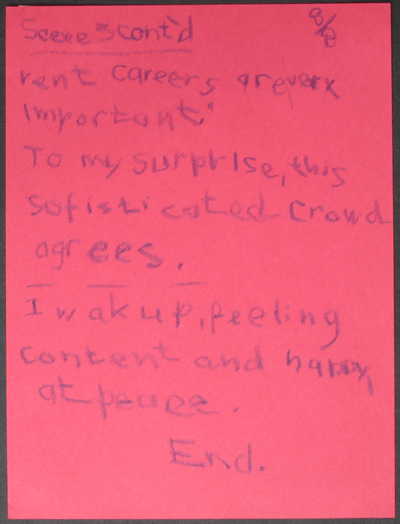 8/8
Scene 3 cont'd
rent careers are very
important."
To my surprise, this
sofisticated crowd
agrees.
I wak up, feeling
content and happy,
at peace.
End.